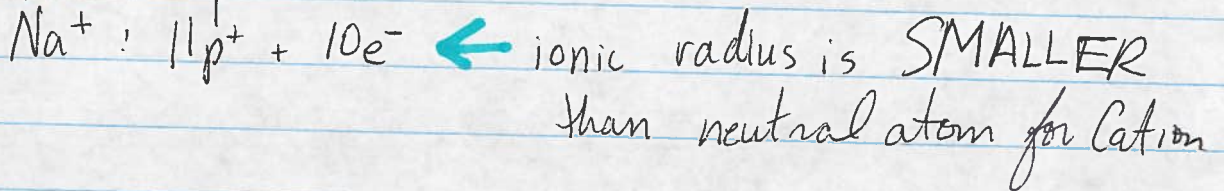 Na⁺ : 11p⁺ + 10e⁻ ← ionic radius is SMALLER
than neutral atom for Cation